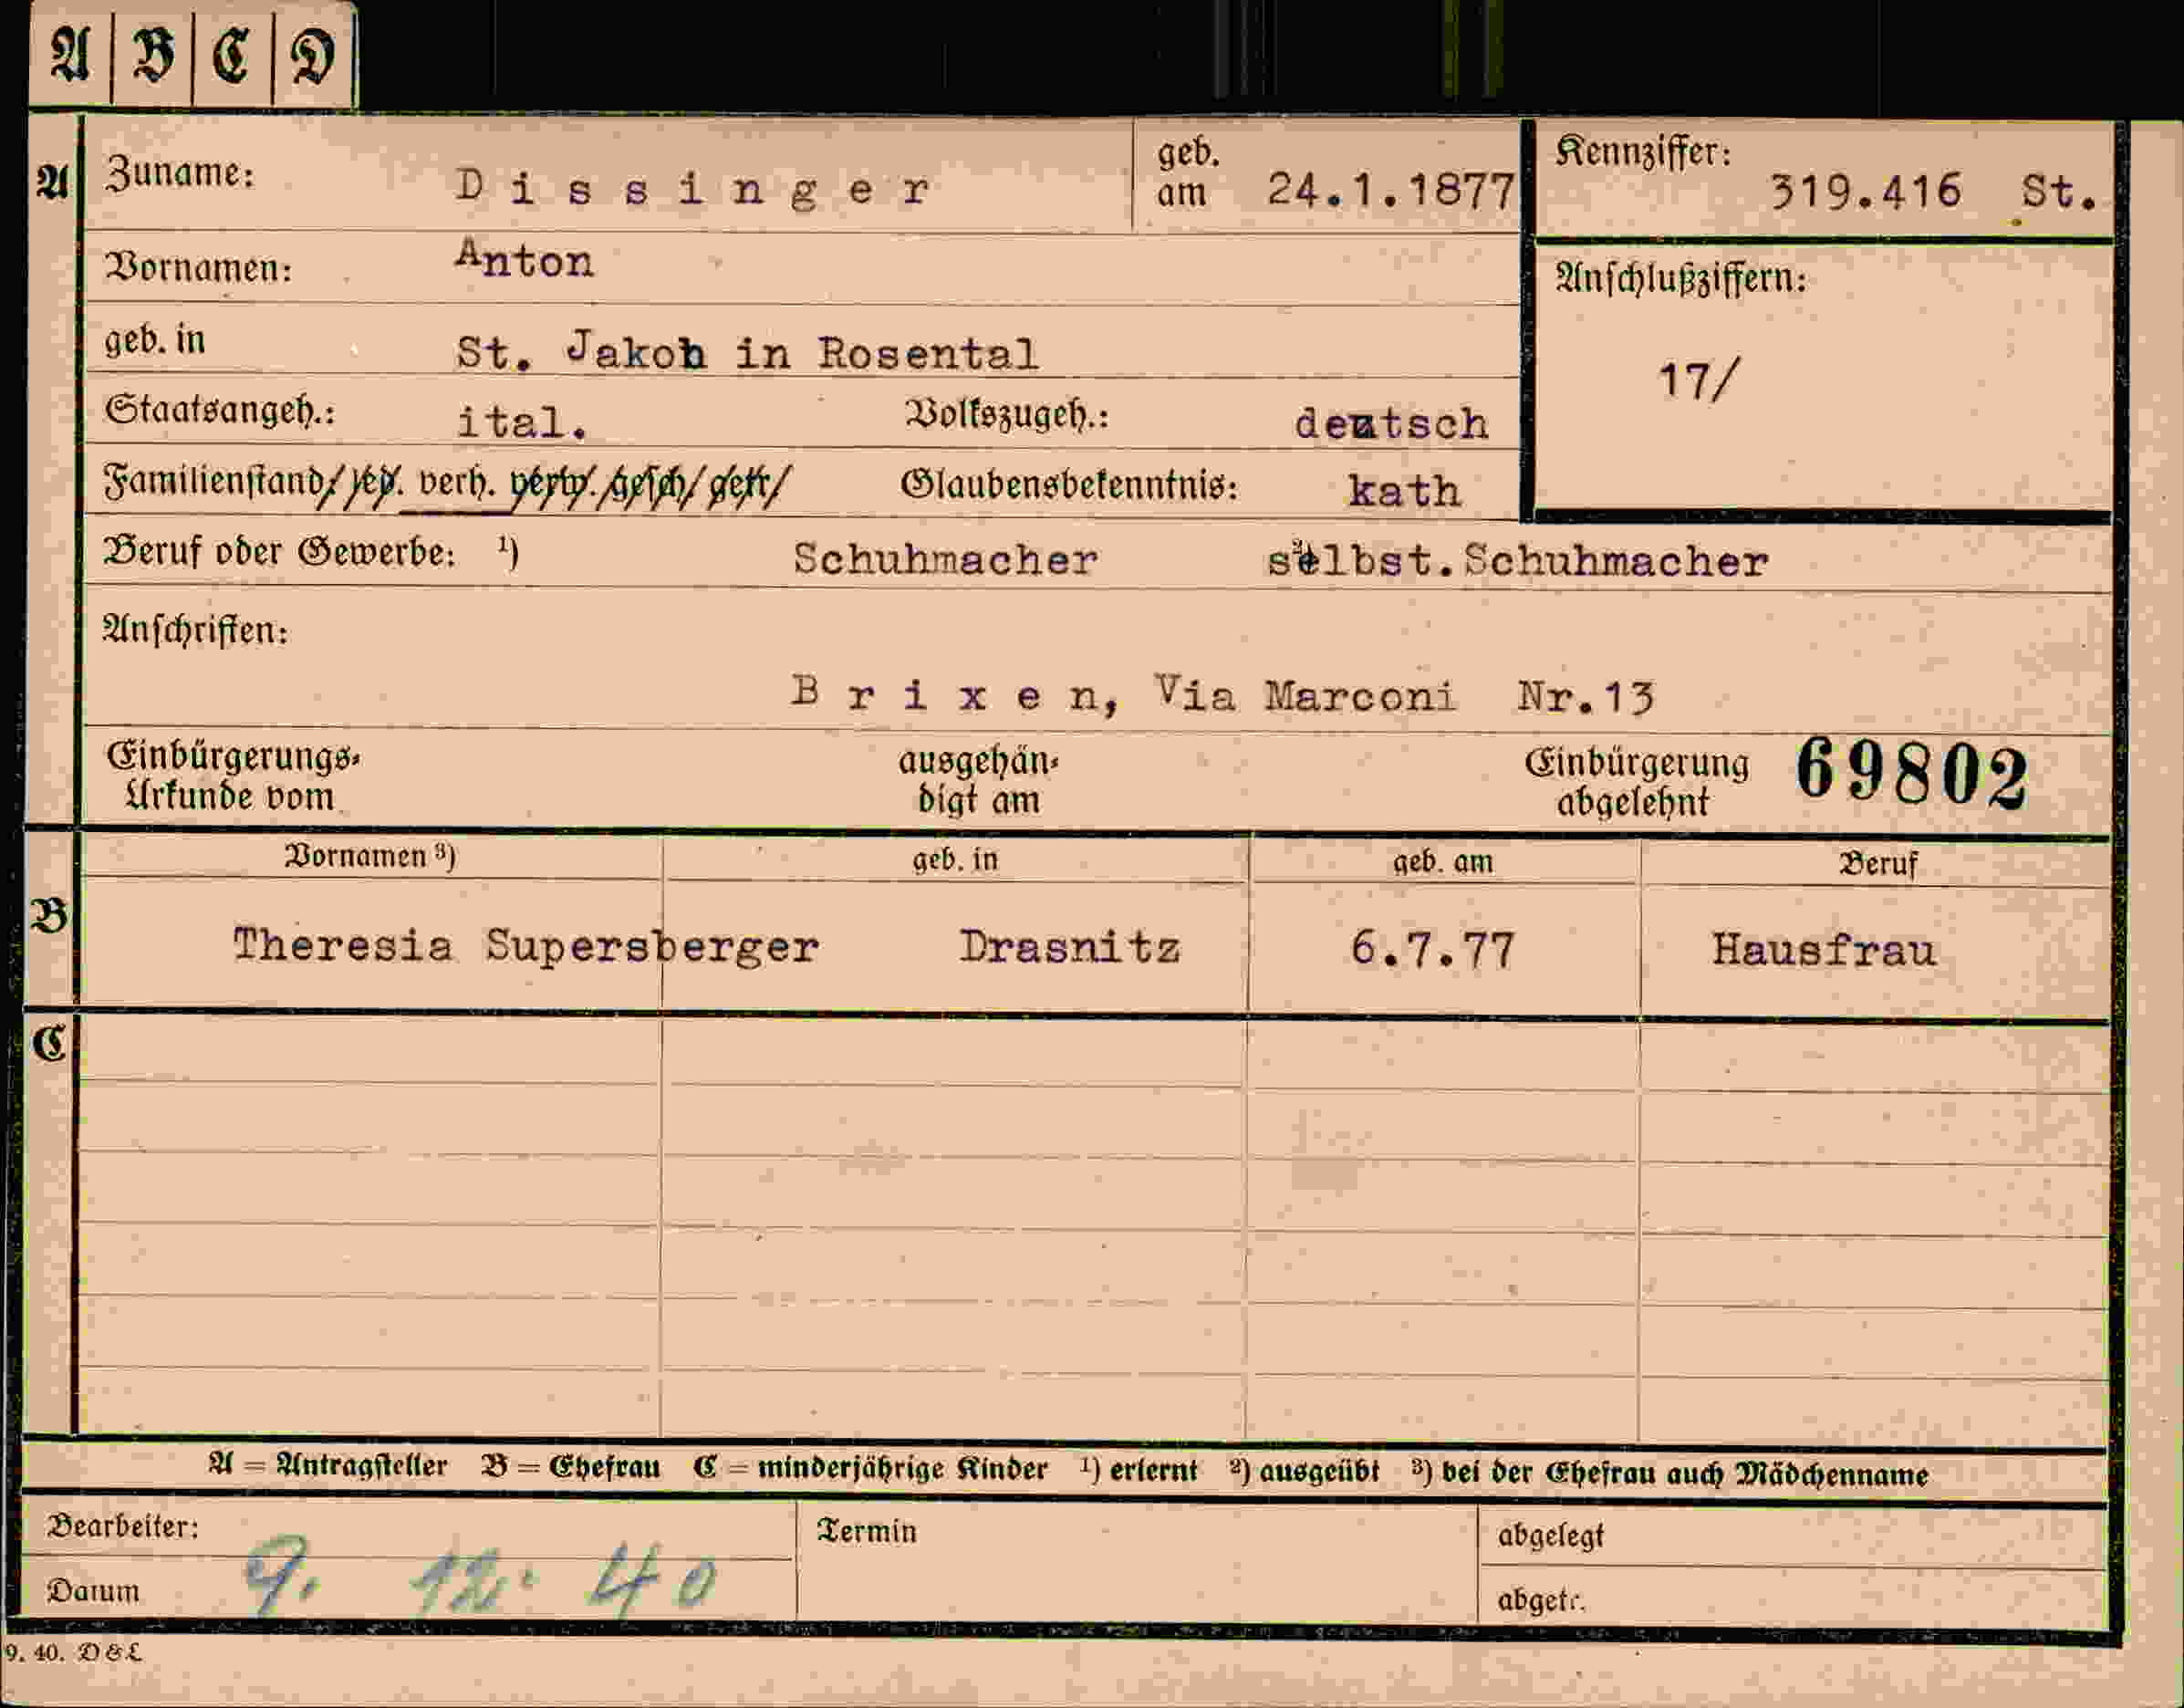 A B C D
A Zuname: Dissinger geb. am 24.1.1877 Kennziffer: 319.416 St.
Vornamen: Anton
Anschlußziffern:
geb. in St. Jakob in Rosental
17/
Staatsangeh.: ital. Volkszugeh.: deutsch
Familienstand led. verh. verw. gesch. getr. Glaubensbekenntnis: kath
Beruf oder Gewerbe: ¹) Schuhmacher ²) selbst.Schuhmacher
Anschriften:
Brixen, Via Marconi Nr.13
Einbürgerungs- ausgehän- Einbürgerung 69802
Urkunde vom digt am abgelehnt
Vornamen ³) geb. in geb. am Beruf
B Theresia Supersberger Drasnitz 6.7.77 Hausfrau
C
A = Antragsteller B = Ehefrau C = minderjährige Kinder ¹) erlernt ²) ausgeübt ³) bei der Ehefrau auch Mädchenname
Bearbeiter: Termin abgelegt
Datum 9. 12. 40 abgetr.
9. 40. D & L